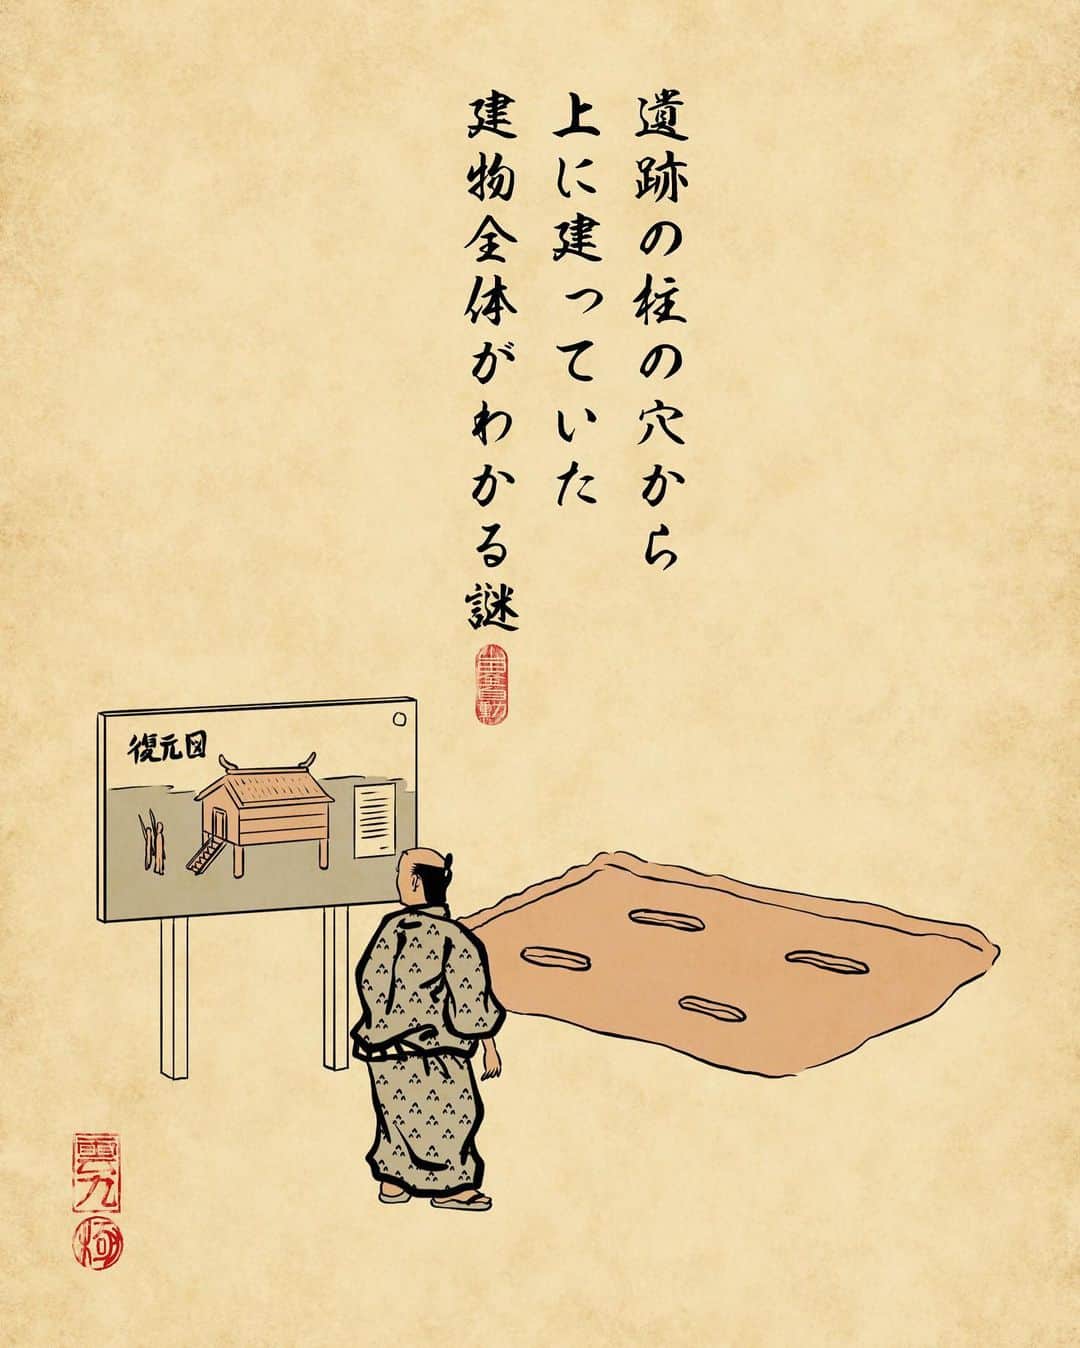 遺跡の柱の穴から
上に建っていた
建物全体がわかる謎
復元図